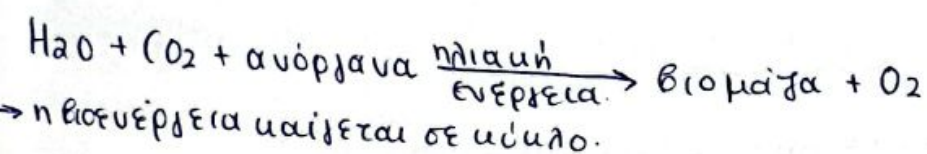 H2O + CO2 + ανόργανα ηλιακή ενέργεια → βιομάζα + O2
→ η βιοενέργεια καίγεται σε κύκλο.